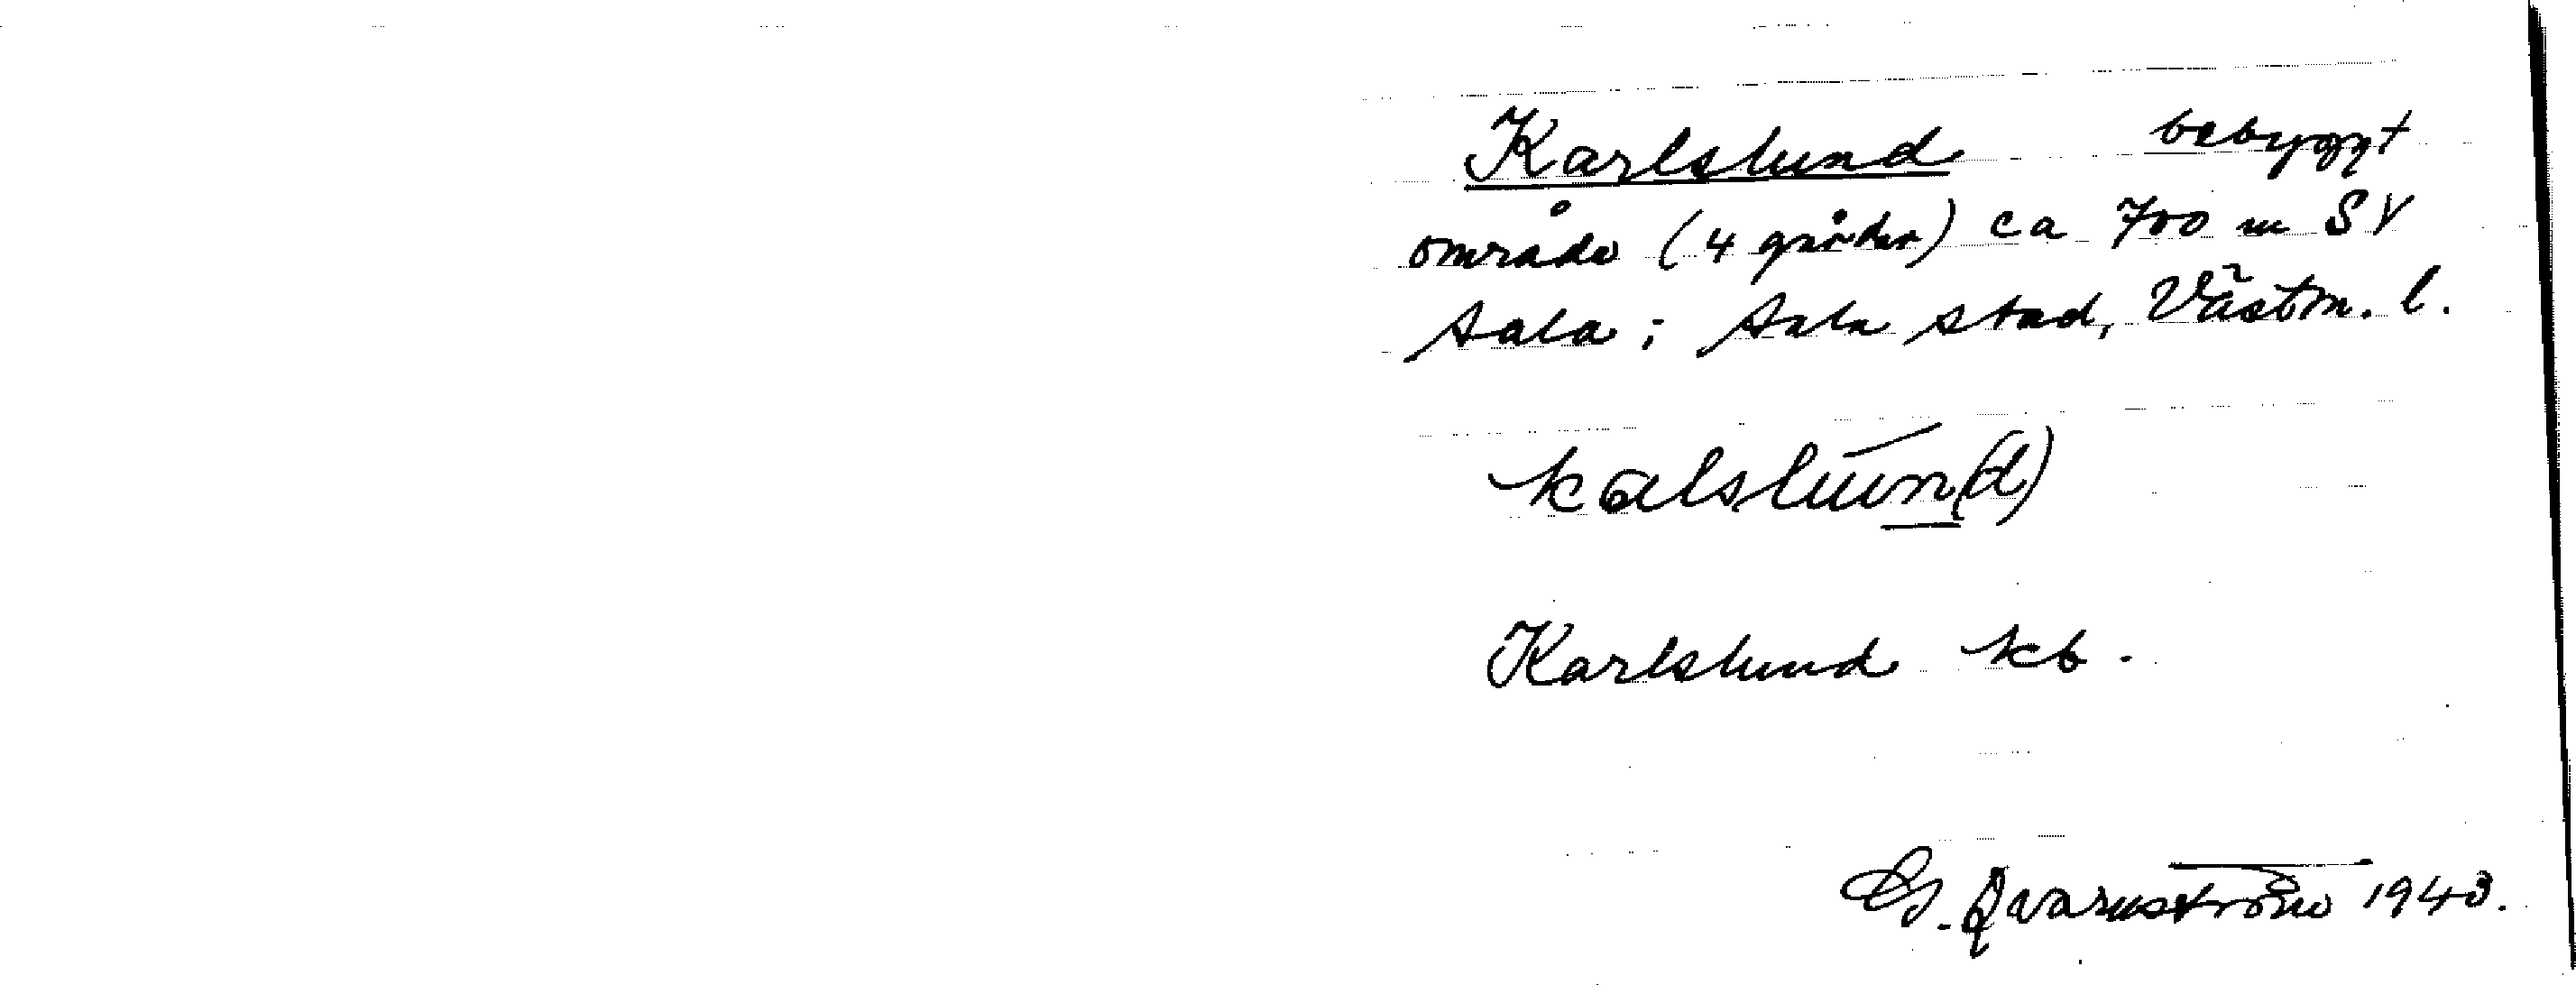 Karlslund bebyggt
område (4 gårdar) ca 700 m SV
Sala; Sala stad, Västm. l.
kalslún(d)
Karlslund kb.
G. Qvarnström 1943.